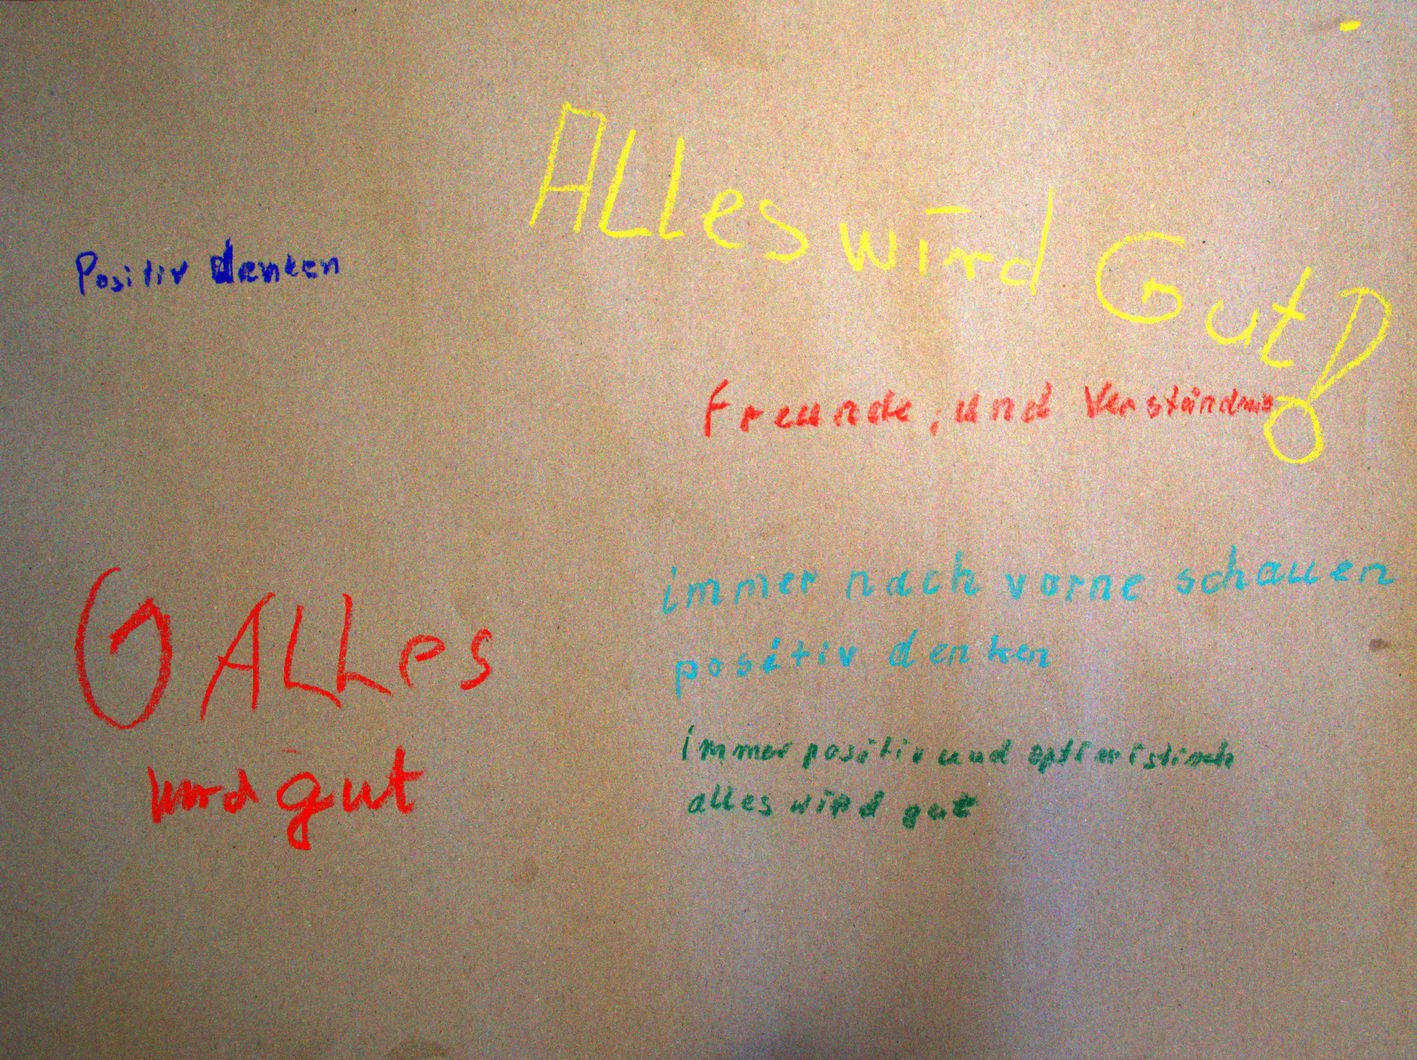 ALLes wird Gut!
Positiv denken
Freunde, und Verständnis
immer nach vorne schauen
positiv denken
ALLes
wird gut
immer positiv und optimistisch
alles wird gut